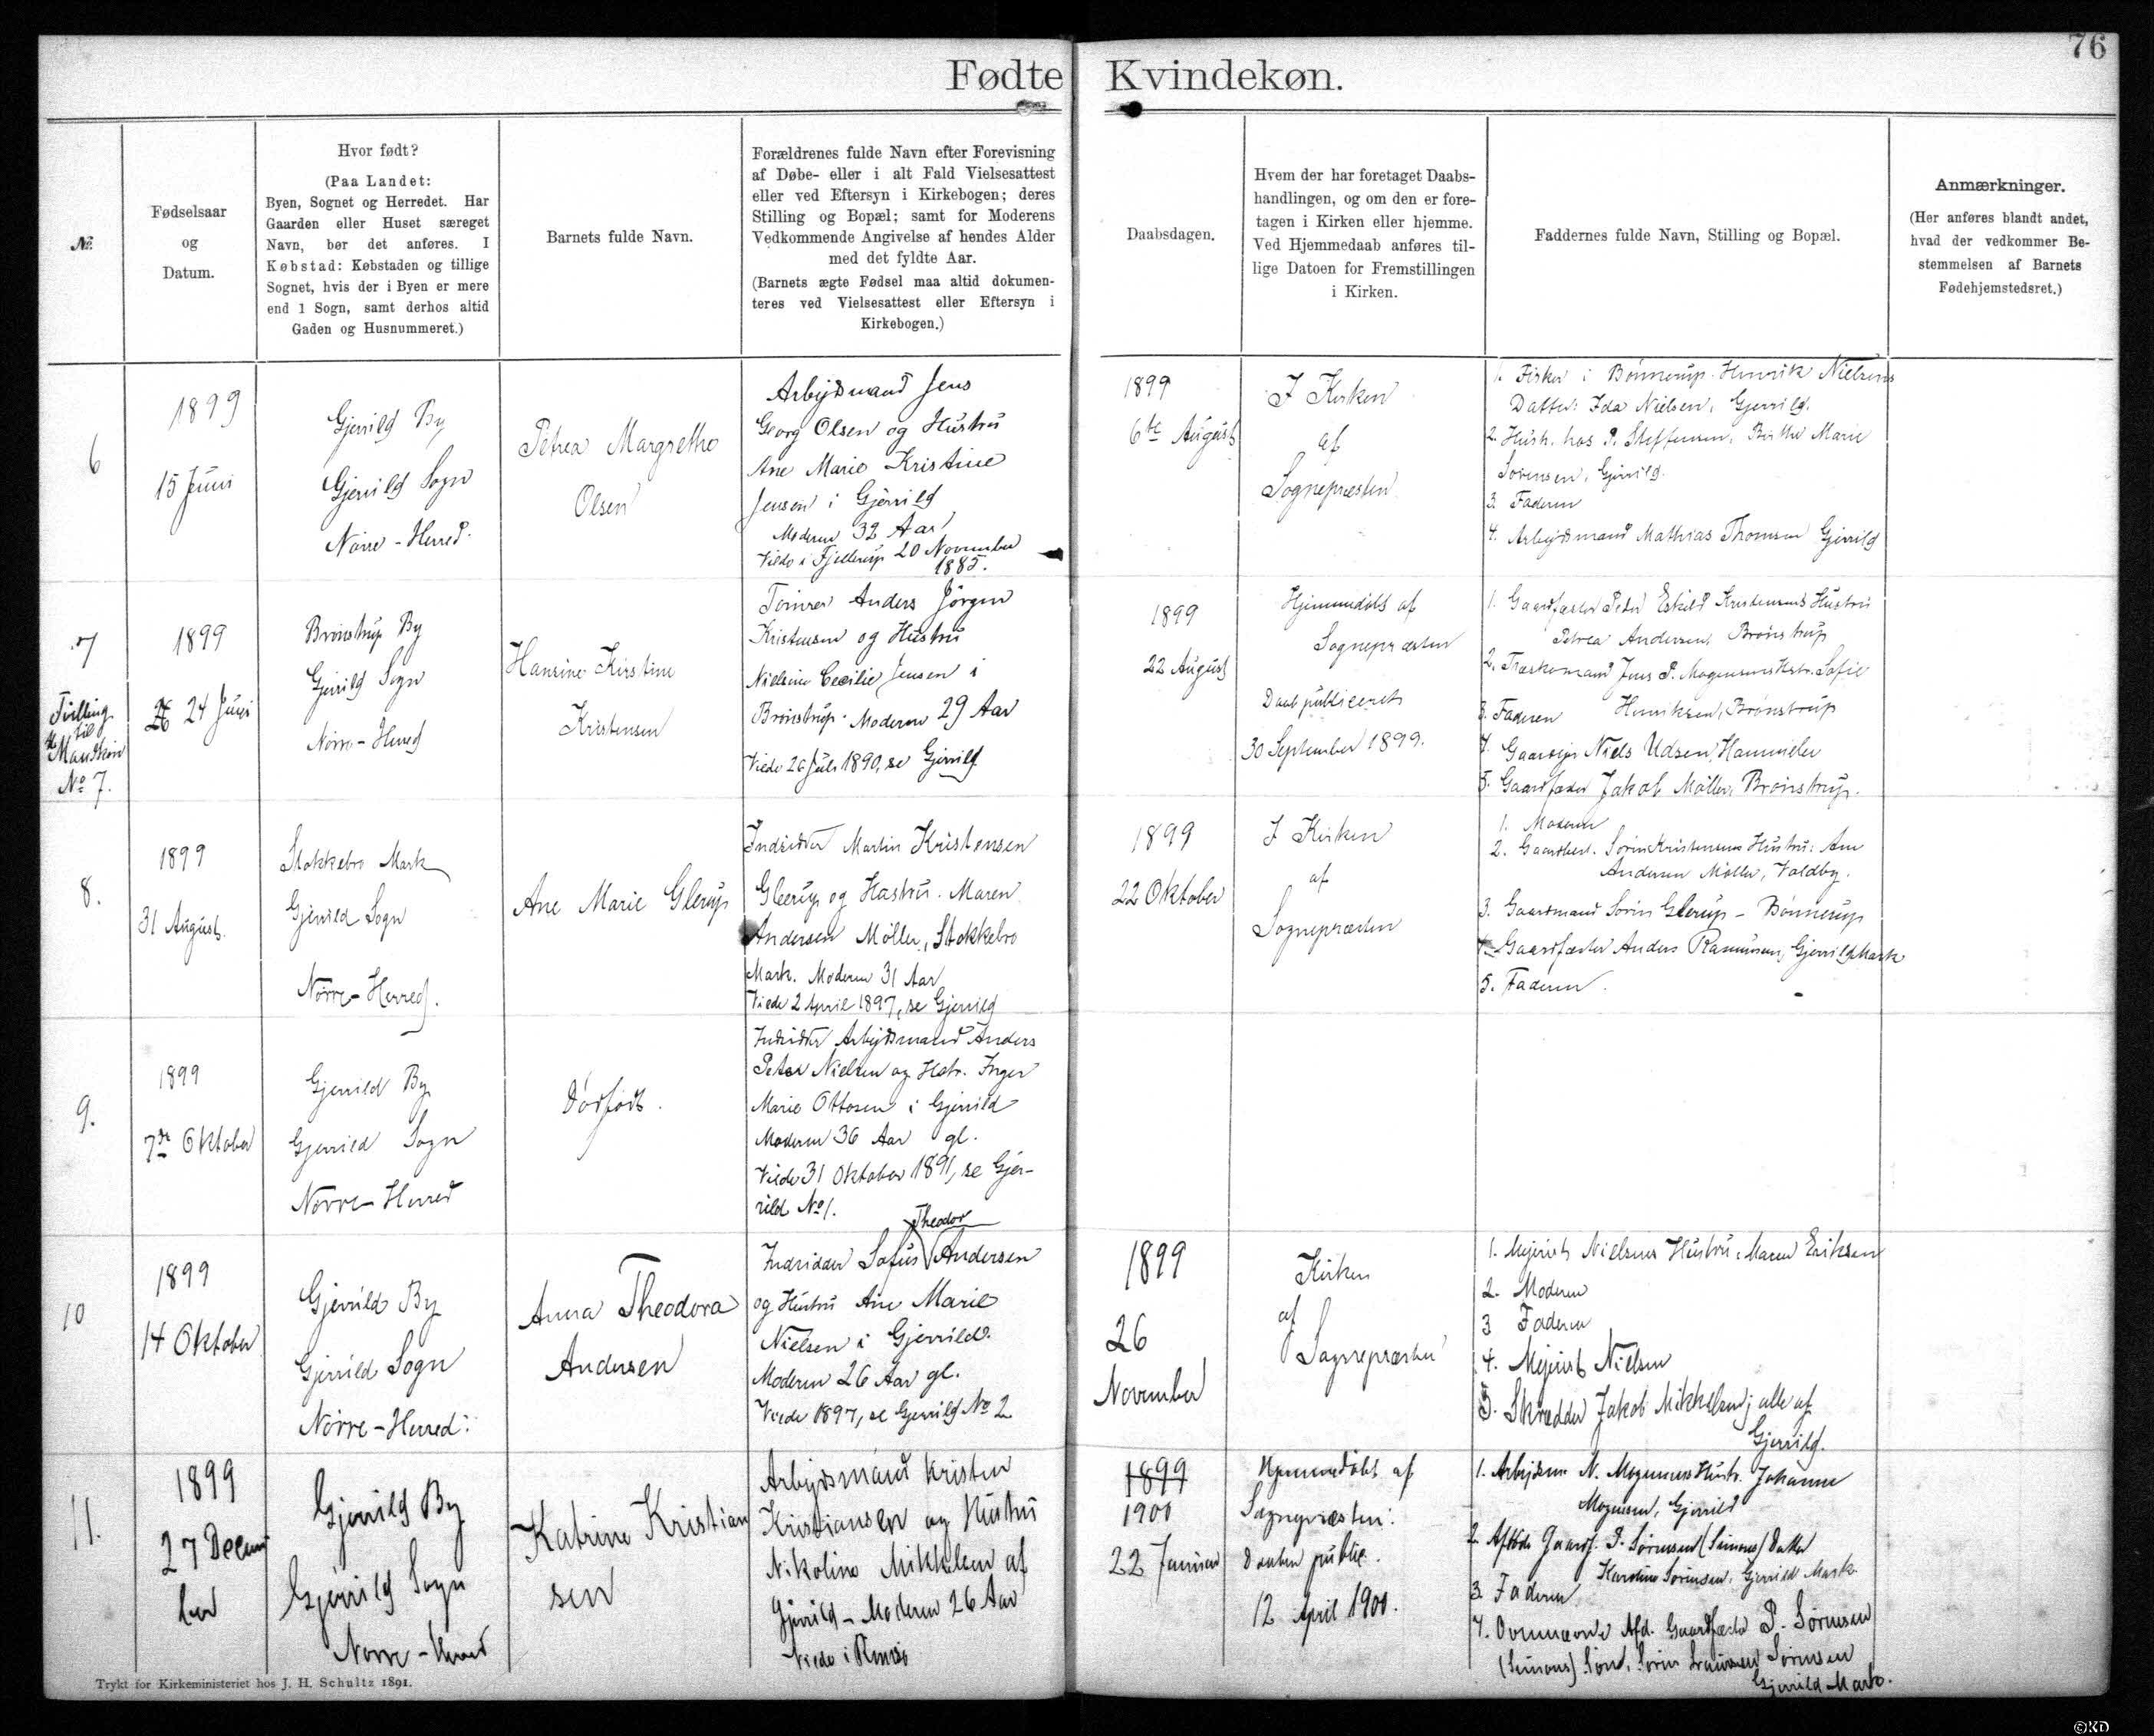 76
Fødte Kvindekøn.
№
Fødselsaar
og
Datum.
Hvor født?
(Paa Landet:
Byen, Sognet og Herredet. Har
Gaarden eller Huset særeget
Navn, bør det anføres. I
Købstad: Købstaden og tillige
Sognet, hvis der i Byen er mere
end 1 Sogn, samt derhos altid
Gaden og Husnummeret.)
Barnets fulde Navn.
Forældrenes fulde Navn efter Forevisning
af Døbe- eller i alt Fald Vielsesattest
eller ved Eftersyn i Kirkebogen; deres
Stilling og Bopæl; samt for Moderens
Vedkommende Angivelse af hendes Alder
med det fyldte Aar.
(Barnets ægte Fødsel maa altid dokumen-
teres ved Vielsesattest eller Eftersyn i
Kirkebogen.)
Daabsdagen.
Hvem der har foretaget Daabs-
handlingen, og om den er fore-
tagen i Kirken eller hjemme.
Ved Hjemmedaab anføres til-
lige Datoen for Fremstillingen
i Kirken.
Faddernes fulde Navn, Stilling og Bopæl.
Anmærkninger.
(Her anføres blandt andet,
hvad der vedkommer Be-
stemmelsen af Barnets
Fødehjemstedsret.)
6
1899
15 Juni
Gjerrild By
Gjerrild Sogn
Nörre-Herred.
Petrea Margrethe
Olsen
Arbejdsmand Jens
Georg Olsen og Hustru
Ane Marie Kristine
Jensen i Gjerrild
Moderen 32 Aar
Viede i Fjellerup 20 November
1885.
1899
6te August
I Kirken
af
Sognepræsten
1. Fisker i Bönnerup Henrik Nielsens
Datter: Ida Nielsen, Gjerrild.
2. Hush. hos P. Steffensen, Birthe Marie
Sörensen, Gjerrild.
3. Faderen
4. Arbejdsmand Mathias Thomsen Gjerrild
7
Tvilling
til
Mandkön
No 7.
1899
24 Juni
Brönstrup By
Gjerrild Sogn
Nörre-Herred
Hansine Kirstine
Kristensen
Tömrer Anders Jörgen
Kristensen og Hustru
Nielsine Cecilie Jensen i
Brönstrup. Moderen 29 Aar
Viede 26 Juli 1890, se Gjerrild
1899
22 August
Hjemmedöbt af
Sognepræsten
Daab publiceret
30 September 1899.
1. Gaardfæster Peter Eskild Kristensens Hustru
Petrea Andersen, Brönstrup
2. Træskomand Jens P. Mogensens Hstr. Sofie
Henriksen, Brönstrup
3. Faderen
4. Gaardejer Niels Udsen, Hammelev
5. Gaardfæster Jakob Möller, Brönstrup.
8.
1899
31 August.
Stokkebro Mark
Gjerrild Sogn
Nörre-Herred.
Ane Marie Glerup
Indsidder Martin Kristensen
Gleerup og Hustru. Maren
Andersen Möller, Stokkebro
Mark. Moderen 31 Aar
Viede 2 April 1897, se Gjerrild
1899
22 Oktober
I Kirken
af
Sognepræsten
1. Moderen
2. Gaardbest. Sörin Kristensens Hustru: Ane
Andersen Möller, Voldby.
3. Gaardmand Sörin Glerup - Bönnerup
4. Gaardfæster Anders Rasmussen, Gjerrild Mark
5. Faderen.
9.
1899
7de Oktober
Gjerrild By
Gjerrild Sogn
Nörre-Herred
Dödfödt.
Indsidder Arbejdsmand Anders
Peter Nielsen og Hstr. Inger
Marie Ottosen i Gjerrild
Moderen 36 Aar gl.
Viede 31 Oktober 1891, se Gjer-
rild No 1.
10
1899
14 Oktober
Gjerrild By
Gjerrild Sogn
Nörre-Herred.
Anna Theodora
Andersen
Theodor
Indsidder Sofus Andersen
og Hustru Ane Marie
Nielsen i Gjerrild.
Moderen 26 Aar gl.
Viede 1897, se Gjerrild No 2
1899
26
November
Kirken
af
Sognepræsten
1. Mejerist Nielsens Hustru: Maren Eriksen
2. Moderen
3 Faderen
4. Mejerist Nielsen
5. Skrædder Jakob Mikkelsen; alle af
Gjerrild.
11.
1899
27 Decem
ber
Gjerrild By
Gjerrild Sogn
Nörre-Herred
Katrine Kristian
sen
Arbejdsmand Kristen
Kristiansen og Hustru
Nikoline Mikkelsen af
Gjerrild - Moderen 26 Aar
Viede i
1899
1900
22 Januar
Hjemmedöbt af
Sognepræsten.
Daaben public.
12 April 1900.
1. Arbejdsm. N. Mogensens Hustr. Johanne
Mogensen, Gjerrild
2. Afdöde Gaardf. P. Sörensen (Simons) Datter
Karoline Sörensen, Gjerrild Mark
3. Faderen
4. Ovennævnte Afd. Gaardfæster P. Sörensen
(Simons) Sön, Sörin Laursen Sörensen
Gjerrild Mark.
Trykt for Kirkeministeriet hos J. H. Schultz 1891.
©KD